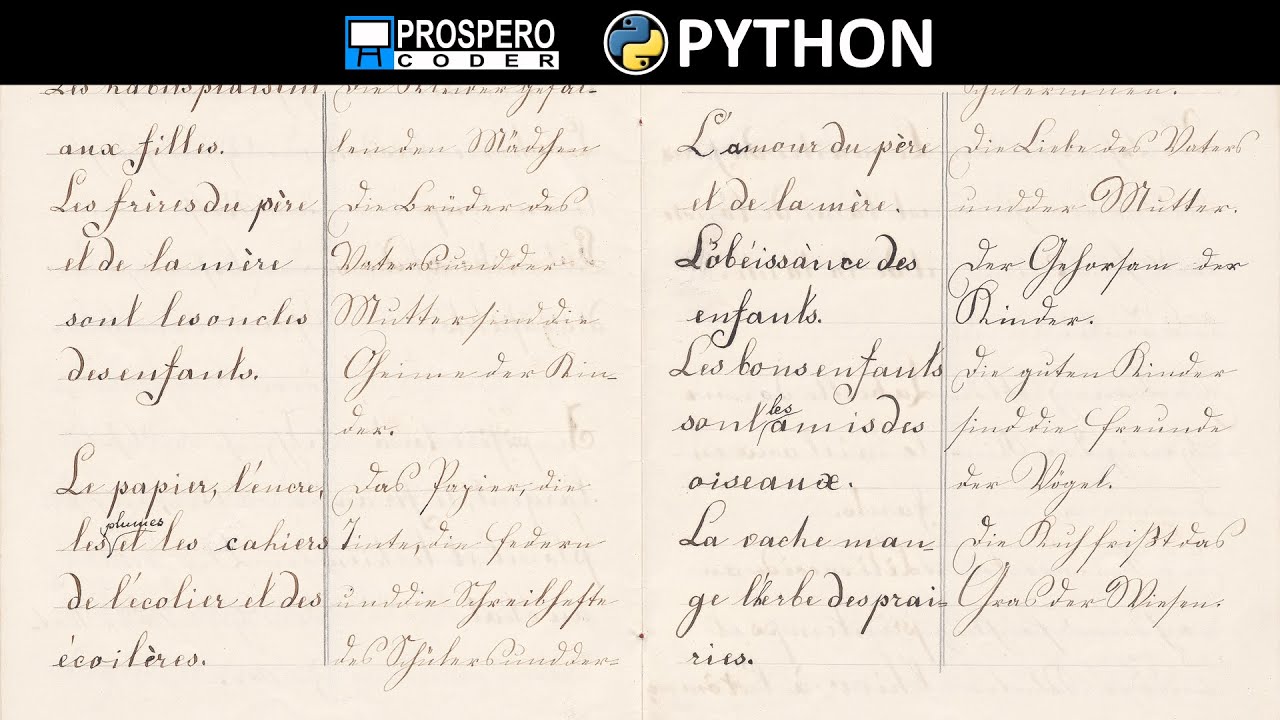 PROSPERO
CODER
PYTHON
Les habits plaisent
aux filles.
Les frères du père
et de la mère
sont les oncles
des enfants.
Le papier, l'encre,
plumes
les et les cahiers
de l'écolier et des
écoilères.
Die Kleider gefal-
len den Mädchen
Die Brüder des
Vaters und der
Mutter sind die
Oheime der Kin-
der.
Das Papier, die
Tinte, die Federn
und die Schreibhefte
des Schülers und der
Schülerinnen.
L'amour du père
et de la mère.
L'obéissànce des
enfants.
Les bons enfants
les
sont amis des
oiseaux.
La vache man-
ge l'herbe des prai-
ries.
Die Liebe des Vaters
und der Mutter.
Der Gehorsam der
Kinder.
Die guten Kinder
sind die Freunde
der Vögel.
Die Kuh frißt das
Gras der Wiesen.